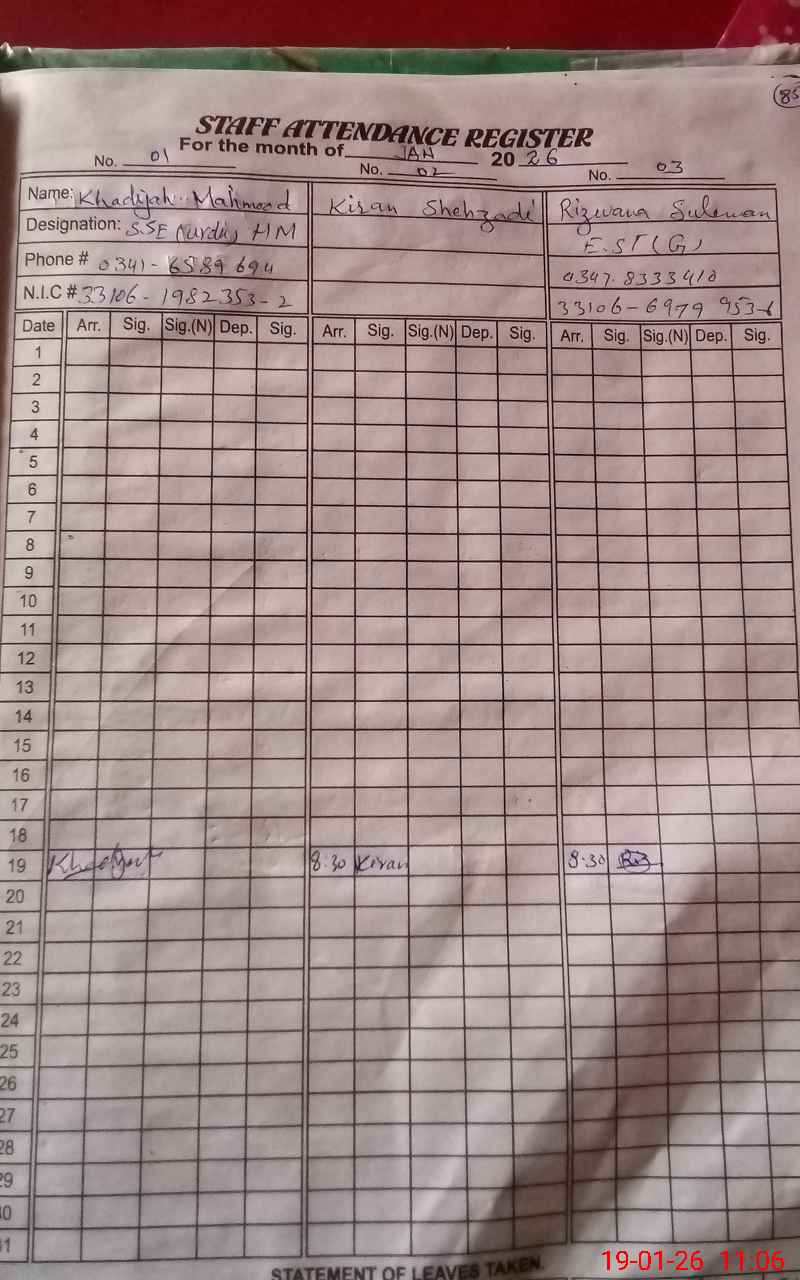 85
STAFF ATTENDANCE REGISTER
For the month of JAN 2026
No. 01 No. 02 No. 03
Name: Khadijah Mahmood Kiran Shehzadi Rizwana Suleman
Designation: S.SE (urdu) HM E.ST (G)
Phone # 0341-6589694 0347.8333410
N.I.C # 33106-1982353-2 33106-6979953-6
Date Arr. Sig. Sig.(N) Dep. Sig. Arr. Sig. Sig.(N) Dep. Sig. Arr. Sig. Sig.(N) Dep. Sig.
1
2
3
4
5
6
7
8
9
10
11
12
13
14
15
16
17
18
19 8:30 Kiran 8:30
20
21
22
23
24
25
26
27
28
29
30
31
STATEMENT OF LEAVES TAKEN.
19-01-26 11:06